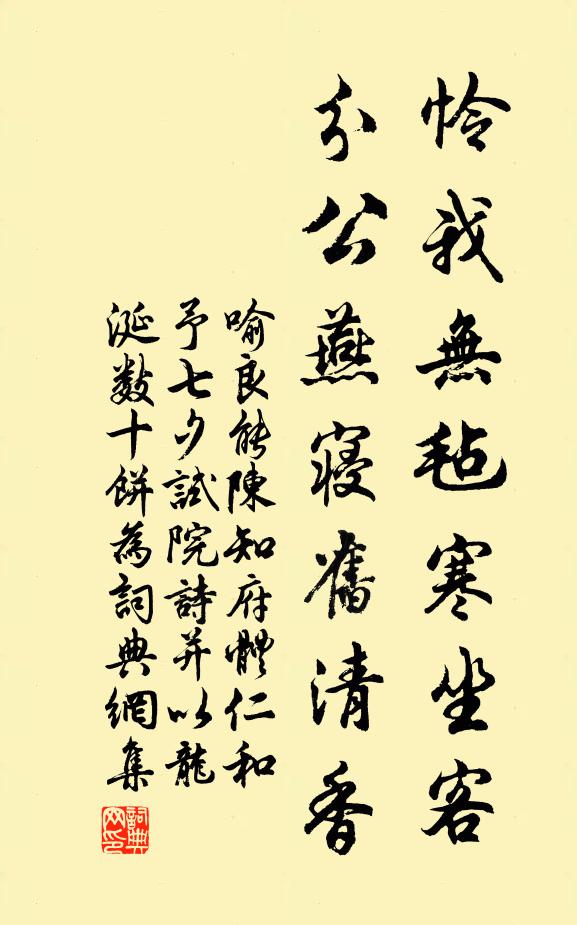 怜我無毡寒坐客
分公燕寝舊清香
喻良能陳知府體仁和
予七夕試院詩并以龍
涎数十餅為詞典網集
詞典網印